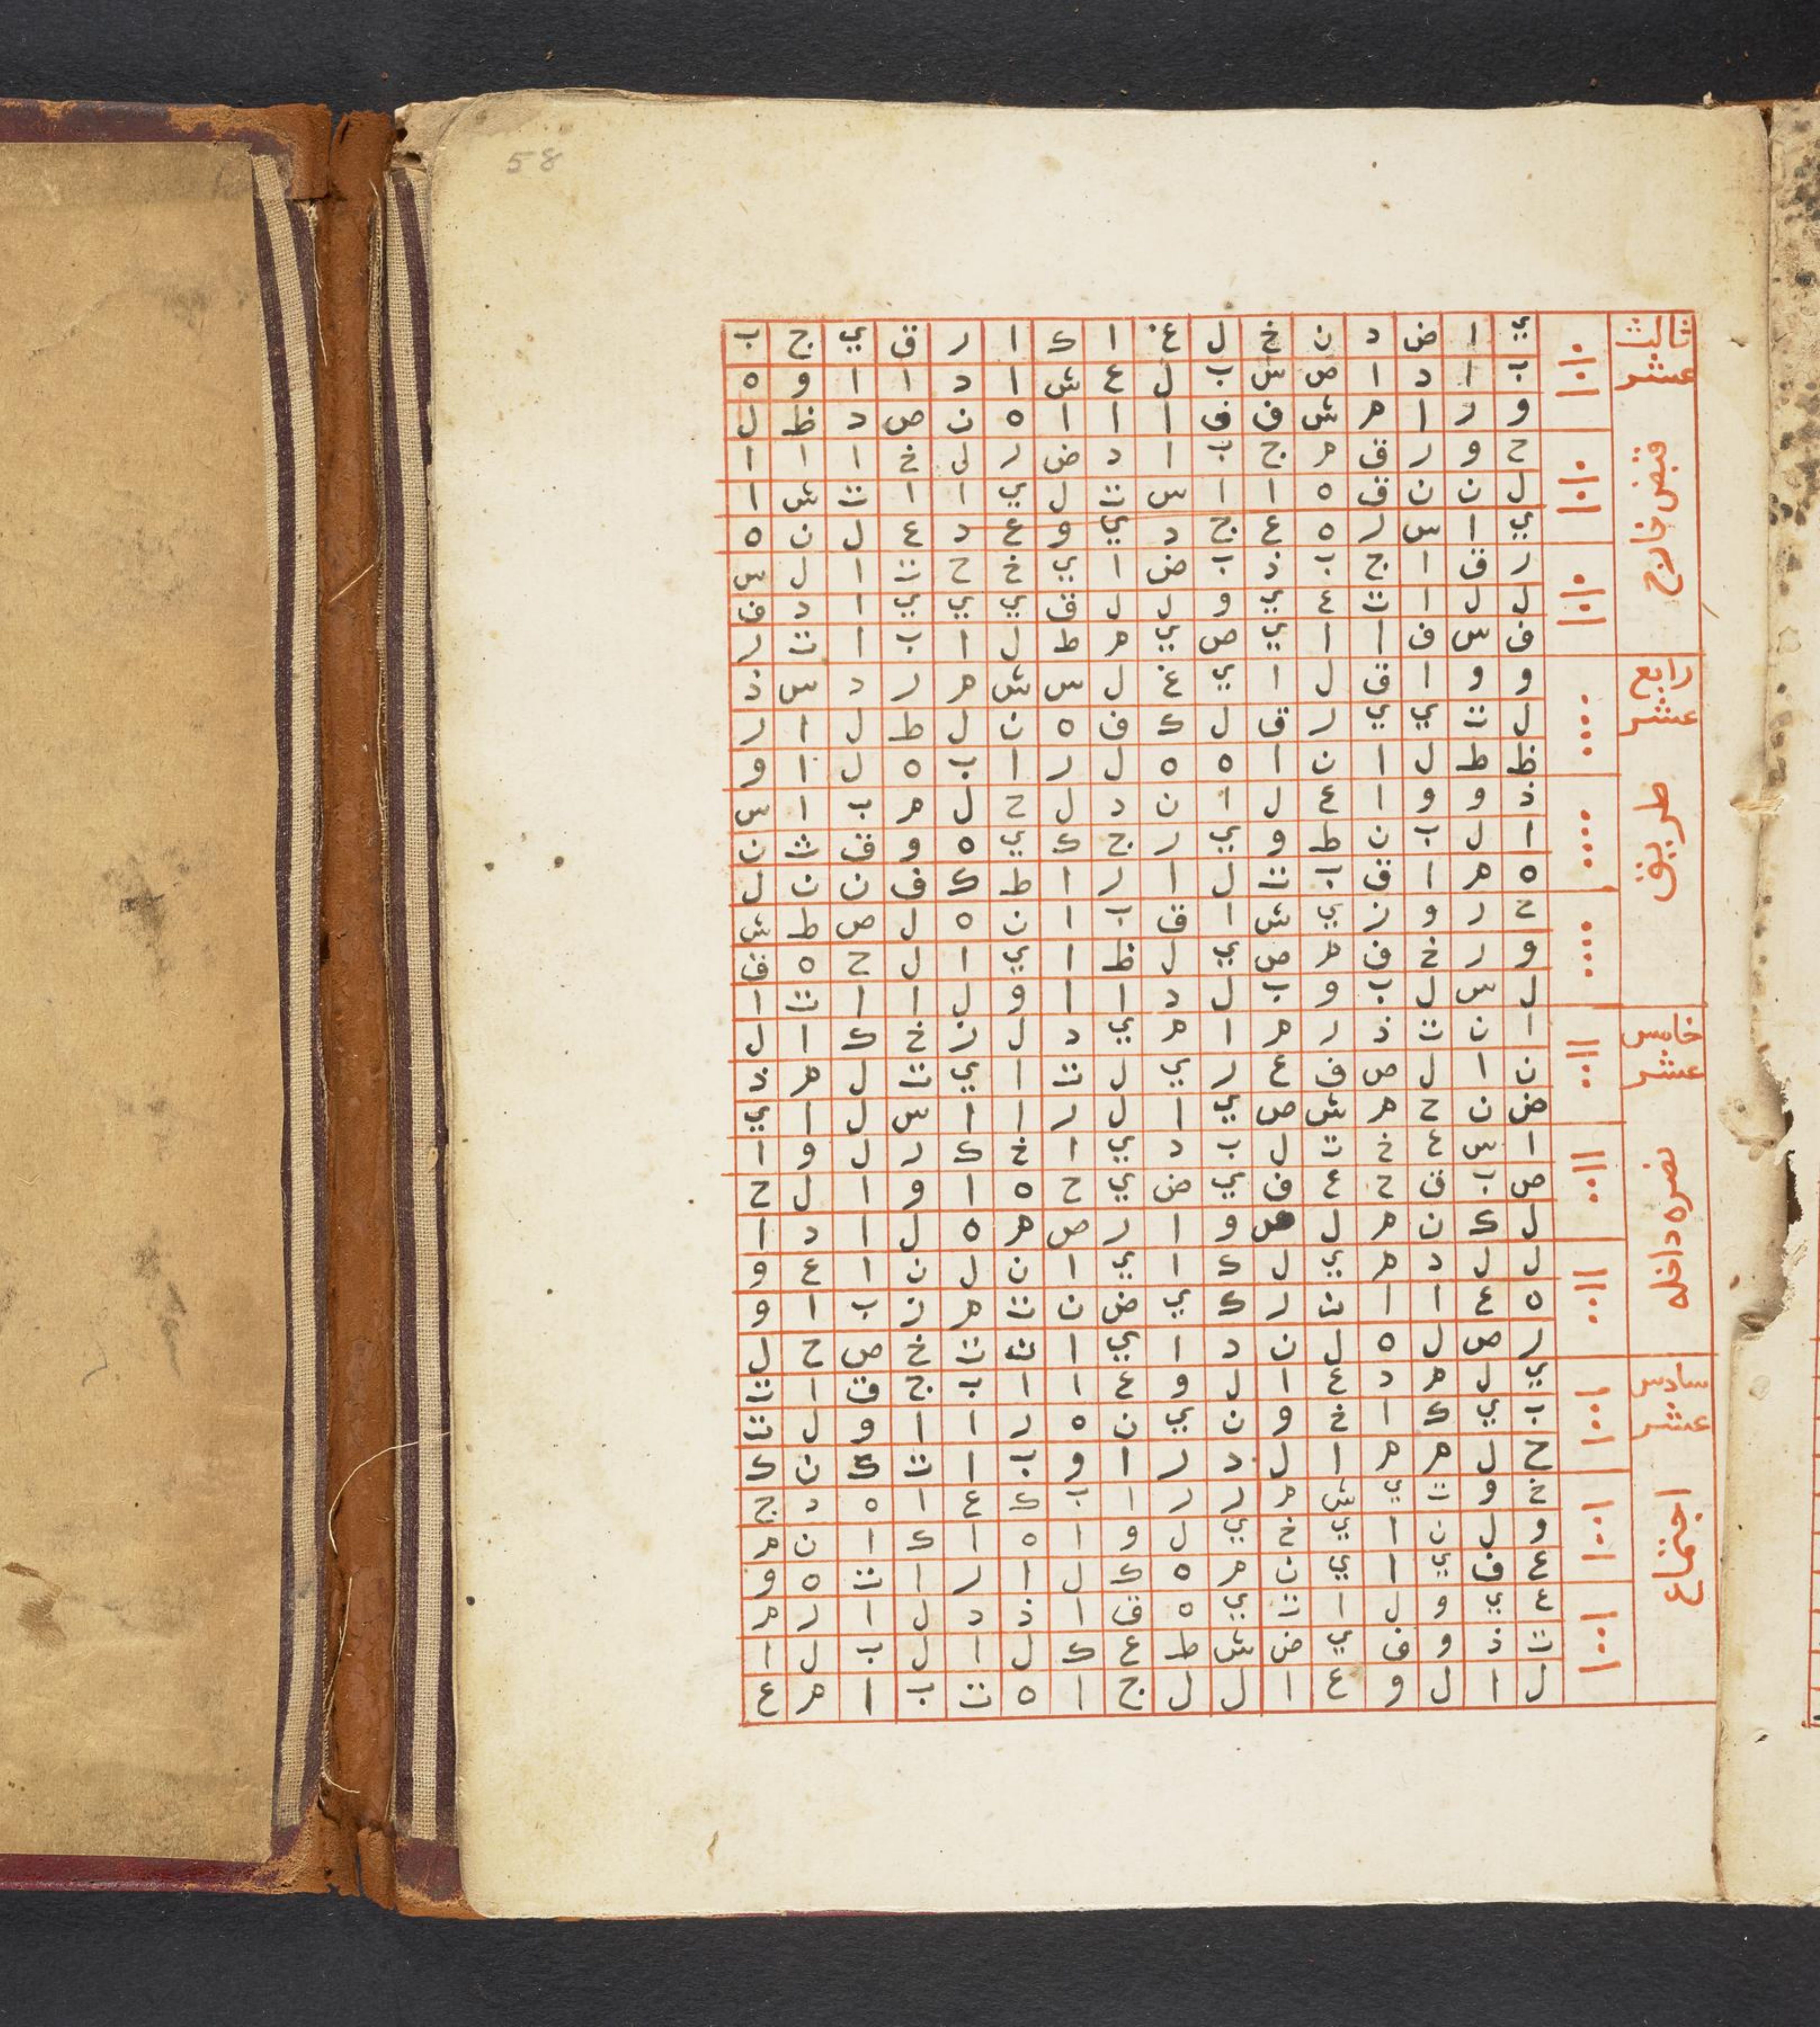 58
ثالث
عشر
قبض خارج
ي ا ض د ن خ ل غ ا ك ا ر ق ي ج ب
ب ا د ا ص س ب ل ع ش ا د ا ا و ه
و ر ا م ش ف ف ا ا ا ه ن ص د ظ ل
ح و ر ق م ج ب ا د ض ر ل خ ا ا ا
ل ن ن ق ه ا ا س ت ل ي ا ا ت ش ا
ي ا س ر ه ع ج د ي و ع د ع ل ن ه
ر ق ا ج ب ذ ب ض ا ي خ ح ت ا ل س
ل ل ا ت ع ي و ل ل ق ي ي ي ا د ف
ف س ف ا ا ي ص ي م ط ل ا ب ا ت ر
رابع
عشر
طريق
و و ا ق ل ا ي غ ل س ش م ر د س ذ
ل ت ي ي ر ق ل ك ف ه ن ل ط ل ا ر
ظ ط ل ا ن ا ه ه ل ر ا ب ه ل ا و
ذ و و ا ع ل ا ن د ل ح ل م ب ا س
ا ل ب ن ط و ي ر ج ك ي ه و ق ث ن
ه م ا ق ب ت ل ا ر ا ط ك ف ن ن ل
ح ر و ز ي ش ا ق ب ا ن ه ل ص ط ش
و ر خ ف م ص ي ل ظ ا ي ا ل ح ه ق
ل س ل ب و ب ل د ا ا و ل ا ا ت ا
خامس
عشر
نصره داخله
ا ن ت ذ ر م ا م ي د ل ز خ ك ا ل
ن ا ل ص ف ع ر ي ل ت ا ي ت ل م ذ
ض ن ح م ش ص ي ا ل ر ا ا س ل ا ي
ا س ع خ ت ل ب د ي ا خ ك ر ل و ا
ص ب ق ح ع ف ي ض ي ح ه ا و ا ل ح
ل ك ن م ل ص و ا ر ص م ه ل ا د ا
ل ل د م ي ل ك ا ي ا ن ل ن ا ع و
ه ع ا ا ن ر ك ي ض ن ت م ز ب ا و
ر ص ل ه ل ن د ا ي ا ت ت خ ص ح ل
سادس
عشر
اجتماع
ي ل م د ع ا ل و ع ا ا ب ج ق ا ت
ب ي ك ا خ و ن ي ن ه ر ا ا و ل ت
ح ل م م ا ل د ر ا و ب ا ت ك ن ك
خ و ت ي ش م ر ر ا ب ك ع ا ه د ج
و ل ن ا ي خ ي ل و ا ه ا ك ا ن م
ع ف ي ا ي ن م ه ك ل ا ر ا ت ه و
ع ي و ل ا ت ي ه ق ا ذ د ل ا ر م
ت ذ و ف ي ض ش ط ع ك ل ا ل ب ل ا
ل ا ل و ع ا ل ل ج ا ه ت ب ا م ع